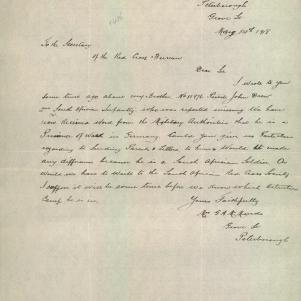 Peterborough
Grove St
May 14th 1918
To the Secretary
of the Red Cross Bureau
Dear Sir
I wrote to you
some time ago about my Brother No 11876 Private John Drew
2nd South African Infantry who was reported missing We have
now received word from the Military Authorities that he is a
Prisoner of War in Germany. Could you give us
regarding to sending Parcels & Letters to him & Would it make
any difference because he is a South African Soldier. Or
would we have to write to the South African Red Cross Society
I suppose it will be some time before we know which
Camp he is in
Yours Faithfully
Mrs
Grove St
Peterborough